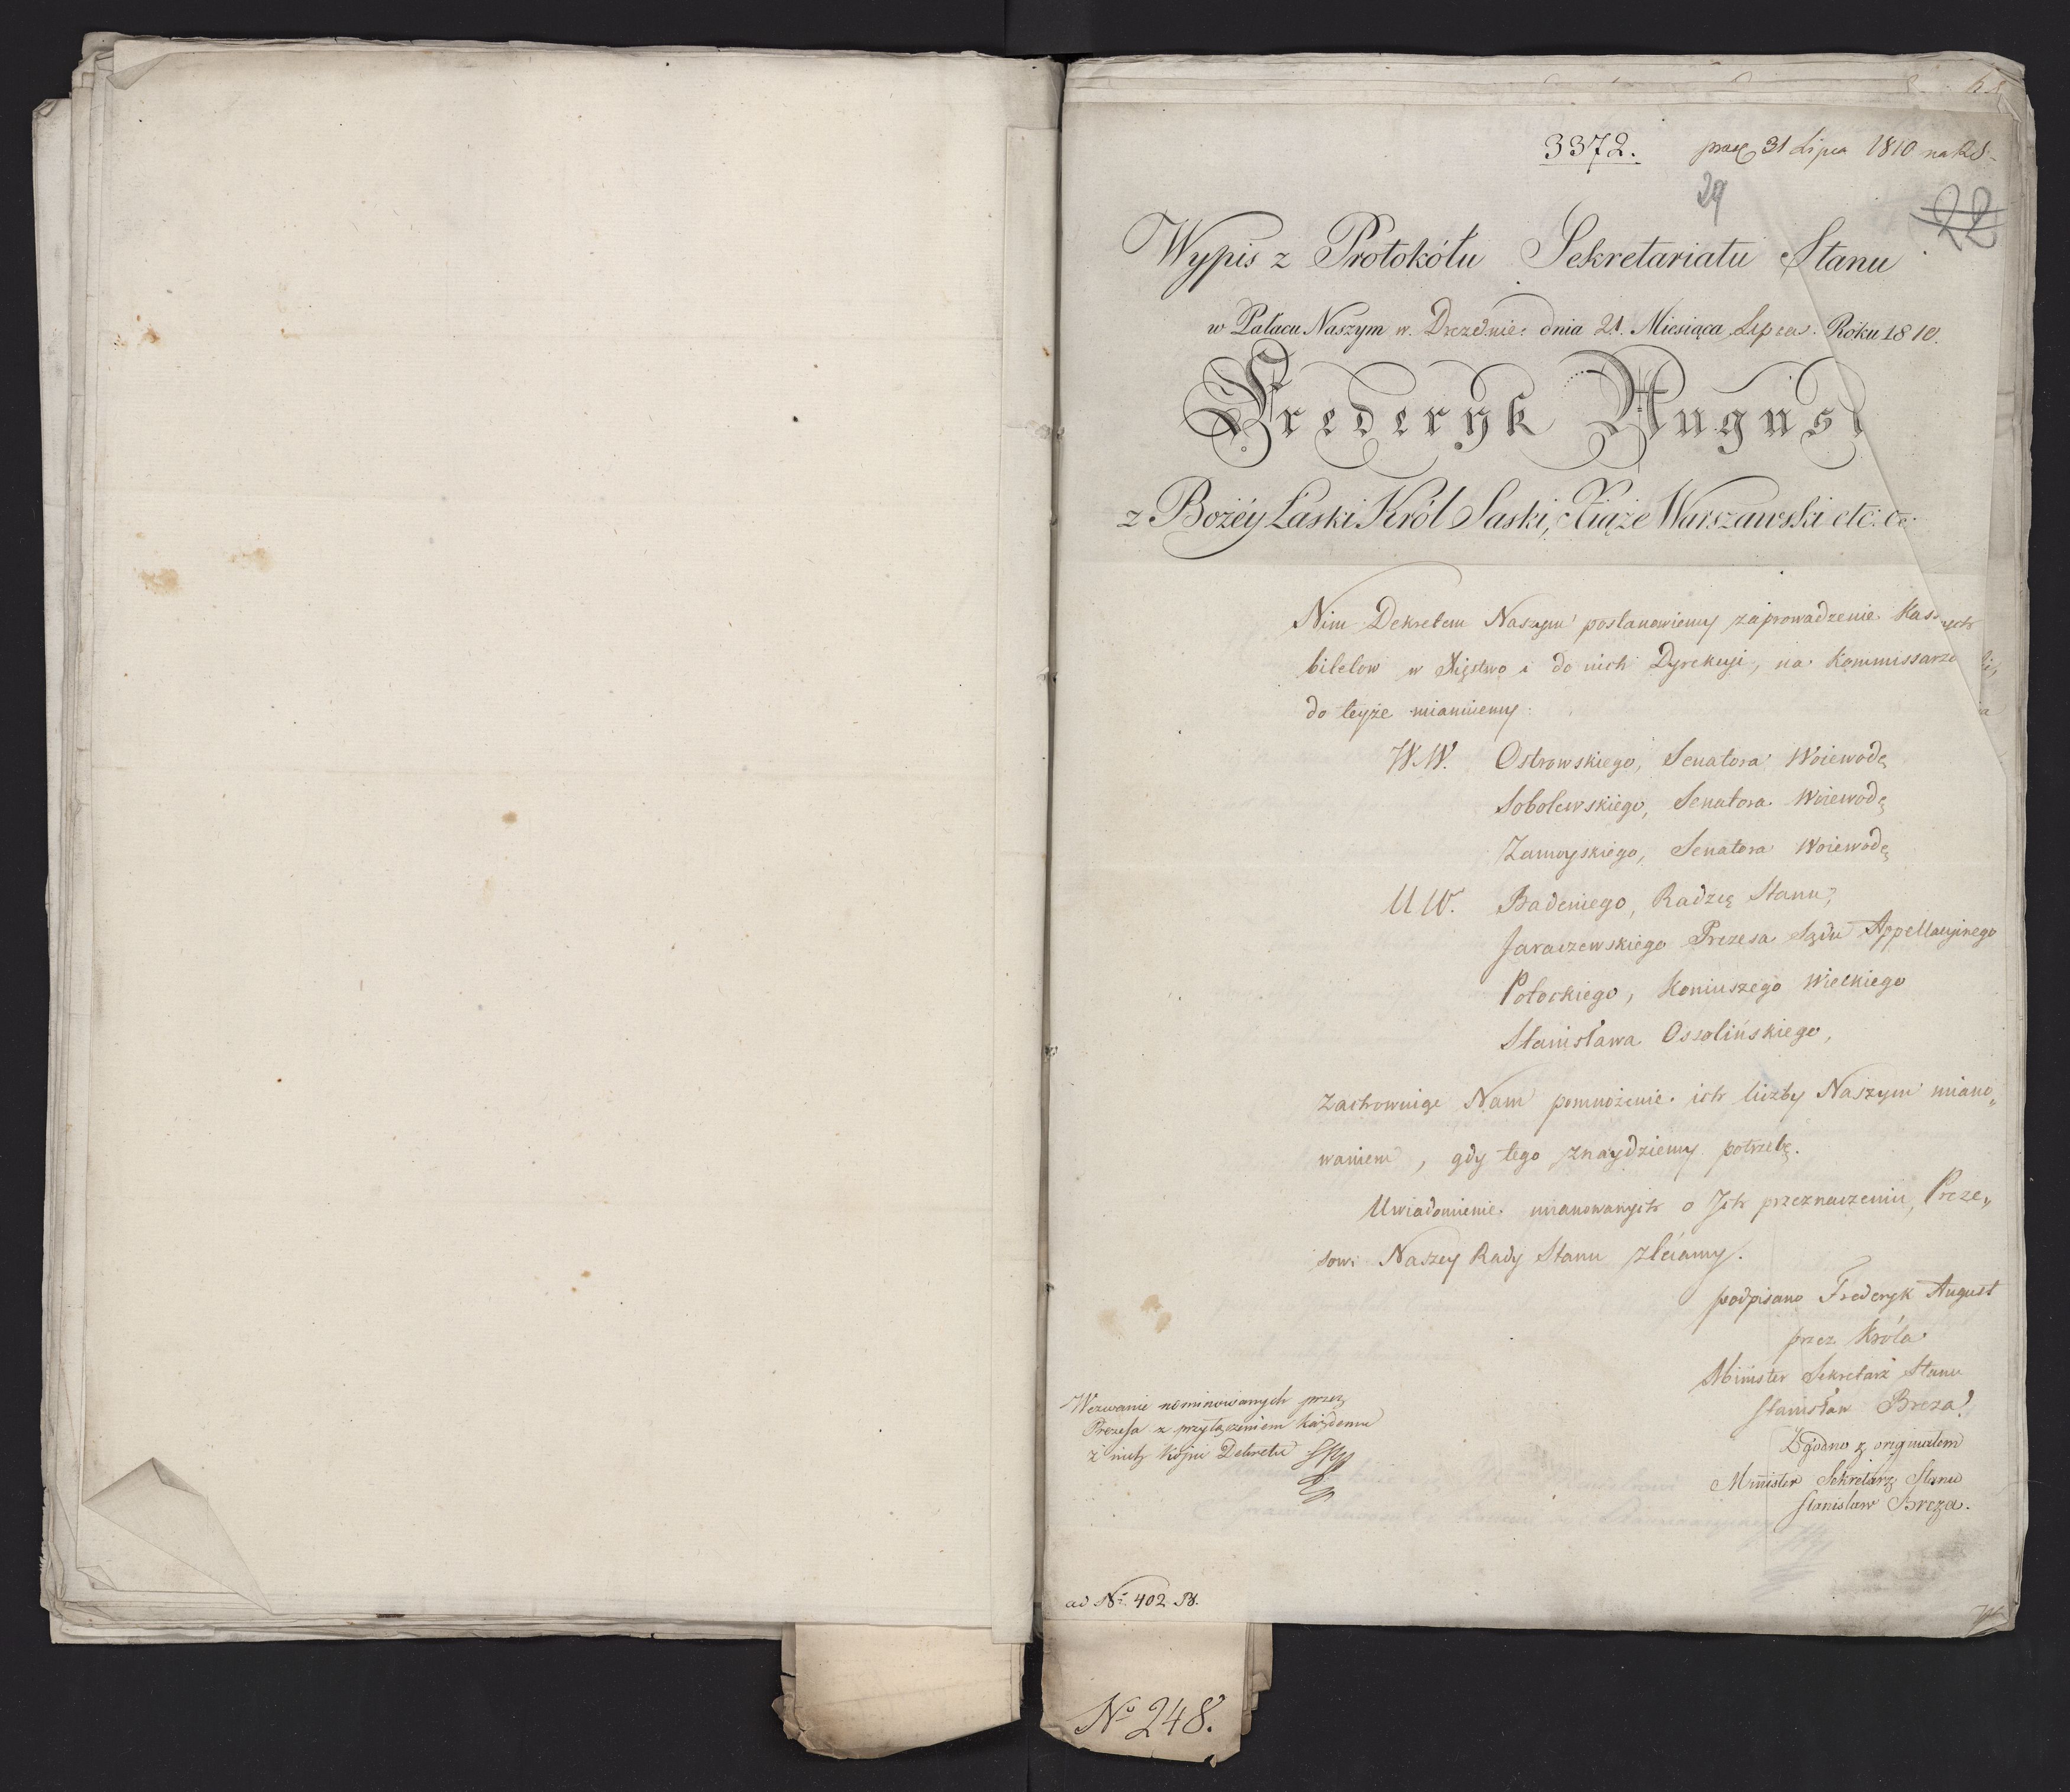 3372. praes 31 Lipca 1810 na RS
29
22
Wypis z Protokółu Sekretariatu Stanu
w Pałacu Naszym w Dreznie dnia 21. Miesiąca Lipca Roku 1810.
Frederyk August
z Bożéy Łaski Król Saski, Xiąże Warszawski etc: etc:
Nim Dekretem Naszym postanowiemy zaprowadzenie Kassowych
biletow w Xięstwo i do nich Dyrekcyi, na Kommissarzo
do teyże mianuiemy
W.W. Ostrowskiego, Senatora Woiewodę
Sobolewskiego, Senatora Woiewodę
Zamoyskiego, Senatora Woiewodę
U W. Badeniego, Radzcę Stanu,
Jaraczewskiego Prezesa Sądu Appellacyinego
Potockiego, Koniuszego Wielkiego
Stanisława Ossolińskiego,
zachowuiąc Nam pomnożenie ich liczby Naszym miano„
waniem, gdy tego znaydziemy potrzebę.
Uwiadomienie mianowanych o Ich przeznaczeniu, Preze„
sowi Naszey Rady Stanu zlecamy.
podpisano Frederyk August
przez Króla
Minister Sekretarz Stanu
Stanisław Breza
Zgodno z originałem
Minister Sekretarz Stanu
Stanisław Breza.
Wezwanie nominowanych przez
Prezesa z przyłączeniem każdemu
z nich kopii Dekretu
ad No. 402.
No 248.